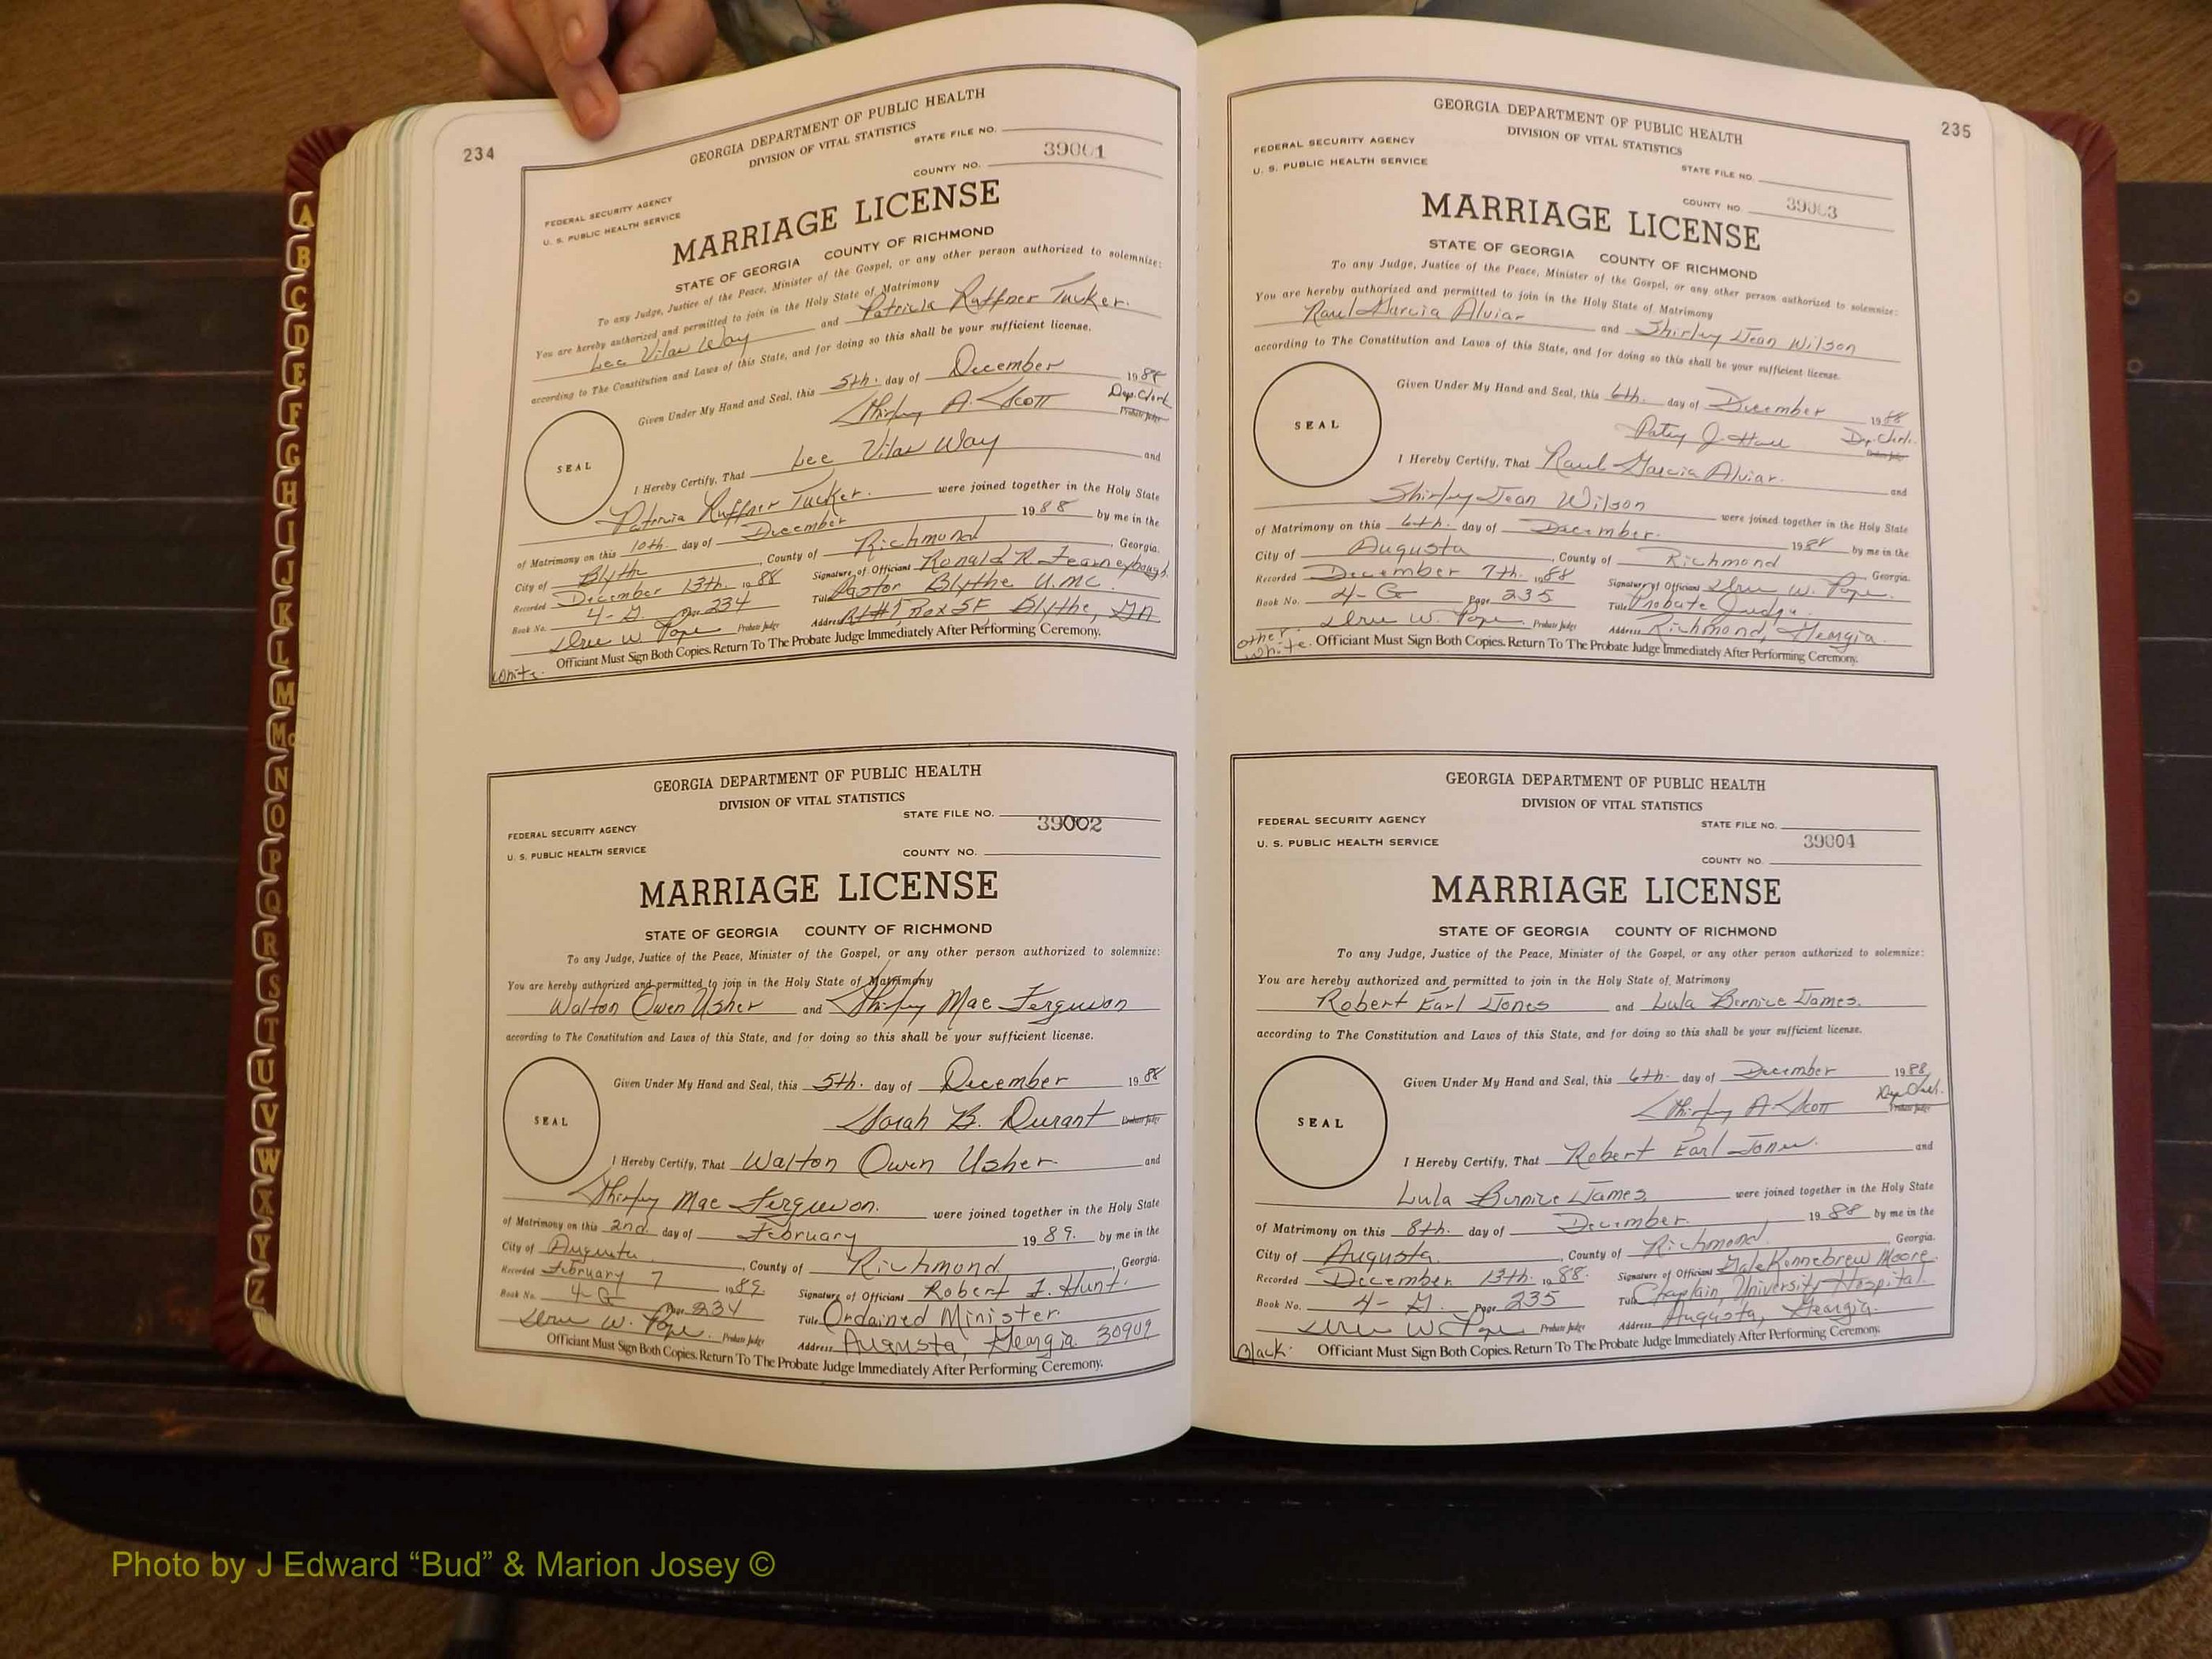 A
B
C
D
E
F
G
H
I
J
K
L
M
Mc
N
O
P
Q
R
S
T
U
V
W
X
Y
Z
234
GEORGIA DEPARTMENT OF PUBLIC HEALTH
DIVISION OF VITAL STATISTICS
STATE FILE NO.
39001
COUNTY NO.
FEDERAL SECURITY AGENCY
U. S. PUBLIC HEALTH SERVICE
MARRIAGE LICENSE
STATE OF GEORGIA COUNTY OF RICHMOND
To any Judge, Justice of the Peace, Minister of the Gospel, or any other person authorized to solemnize:
You are hereby authorized and permitted to join in the Holy State of Matrimony
Lee Vilas Way and Patricia Ruffner Tucker.
according to The Constitution and Laws of this State, and for doing so this shall be your sufficient license.
Given Under My Hand and Seal, this 5th. day of December 1988
Shirley A. Scott Dep. Clerk
Probate Judge
SEAL
I Hereby Certify, That Lee Vilas Way and
Patricia Ruffner Tucker. were joined together in the Holy State
of Matrimony on this 10th. day of December 1988 by me in the
City of Blythe, County of Richmond, Georgia.
Recorded December 13th. 1988 Signature of Officiant Ronald R. Fearneyhough
Book No. 4-G Page 234 Title Pastor Blythe U.M.C.
Probate Judge Address Rt #1 Box 5F Blythe, GA
Officiant Must Sign Both Copies. Return To The Probate Judge Immediately After Performing Ceremony.
White.
GEORGIA DEPARTMENT OF PUBLIC HEALTH
DIVISION OF VITAL STATISTICS
STATE FILE NO.
39002
FEDERAL SECURITY AGENCY
U. S. PUBLIC HEALTH SERVICE
COUNTY NO.
MARRIAGE LICENSE
STATE OF GEORGIA COUNTY OF RICHMOND
To any Judge, Justice of the Peace, Minister of the Gospel, or any other person authorized to solemnize:
You are hereby authorized and permitted to join in the Holy State of Matrimony
Walton Owen Usher and Shirley Mae Ferguson
according to The Constitution and Laws of this State, and for doing so this shall be your sufficient license.
Given Under My Hand and Seal, this 5th. day of December 1988
Sarah B. Durant Probate Judge
SEAL
I Hereby Certify, That Walton Owen Usher and
Shirley Mae Ferguson. were joined together in the Holy State
of Matrimony on this 2nd. day of February 1989. by me in the
City of Augusta, County of Richmond, Georgia.
Recorded February 7 1989. Signature of Officiant Robert I. Hunt.
Book No. 4-G Page 234 Title Ordained Minister
Probate Judge Address Augusta, Georgia 30909
Officiant Must Sign Both Copies. Return To The Probate Judge Immediately After Performing Ceremony.
235
GEORGIA DEPARTMENT OF PUBLIC HEALTH
DIVISION OF VITAL STATISTICS
FEDERAL SECURITY AGENCY
U. S. PUBLIC HEALTH SERVICE
STATE FILE NO.
COUNTY NO. 39003
MARRIAGE LICENSE
STATE OF GEORGIA COUNTY OF RICHMOND
To any Judge, Justice of the Peace, Minister of the Gospel, or any other person authorized to solemnize:
You are hereby authorized and permitted to join in the Holy State of Matrimony
Raul Garcia Alviar and Shirley Jean Wilson
according to The Constitution and Laws of this State, and for doing so this shall be your sufficient license.
Given Under My Hand and Seal, this 6th. day of December 1988
Patsy J. Hall Dep. Clerk.
Probate Judge
SEAL
I Hereby Certify, That Raul Garcia Alviar. and
Shirley Jean Wilson were joined together in the Holy State
of Matrimony on this 6th. day of December. 1988 by me in the
City of Augusta, County of Richmond, Georgia.
Recorded December 7th. 1988 Signature of Officiant W. Pope.
Book No. 4-G Page 235 Title Probate Judge.
W. Pope Probate Judge Address Richmond, Georgia.
Officiant Must Sign Both Copies. Return To The Probate Judge Immediately After Performing Ceremony.
other.
white.
GEORGIA DEPARTMENT OF PUBLIC HEALTH
DIVISION OF VITAL STATISTICS
FEDERAL SECURITY AGENCY
STATE FILE NO.
U. S. PUBLIC HEALTH SERVICE
39004
COUNTY NO.
MARRIAGE LICENSE
STATE OF GEORGIA COUNTY OF RICHMOND
To any Judge, Justice of the Peace, Minister of the Gospel, or any other person authorized to solemnize:
You are hereby authorized and permitted to join in the Holy State of Matrimony
Robert Earl Jones and Lula Bernice James.
according to The Constitution and Laws of this State, and for doing so this shall be your sufficient license.
Given Under My Hand and Seal, this 6th. day of December 1988
Shirley A. Scott Dep. Clerk.
Probate Judge
SEAL
I Hereby Certify, That Robert Earl Jones. and
Lula Bernice James were joined together in the Holy State
of Matrimony on this 8th. day of December. 1988 by me in the
City of Augusta., County of Richmond., Georgia.
Recorded December 13th. 1988. Signature of Officiant Gale Kennebrew Moore.
Book No. 4-G. Page 235 Title Chaplain, University Hospital.
W. Pope Probate Judge Address Augusta, Georgia.
Officiant Must Sign Both Copies. Return To The Probate Judge Immediately After Performing Ceremony.
Black.
Photo by J Edward “Bud” & Marion Josey ©